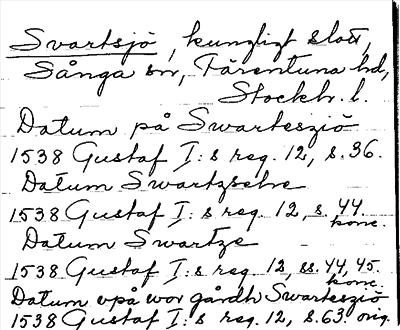 Svartsjö, kungligt slott,
Sånga sn, Färentuna hd,
Stockh. l.
Datum på Swartesziö
1538 Gustaf I:s reg. 12, s. 36.
Datum Swartzsehe
1538 Gustaf I:s reg. 12, s. 44
konc.
Datum Swartze
1538 Gustaf I:s reg. 12, ss. 44, 45.
konc.
Datum vpå wor gårdh Swartesziö
1538 Gustaf I:s reg. 12, s. 63 orig.